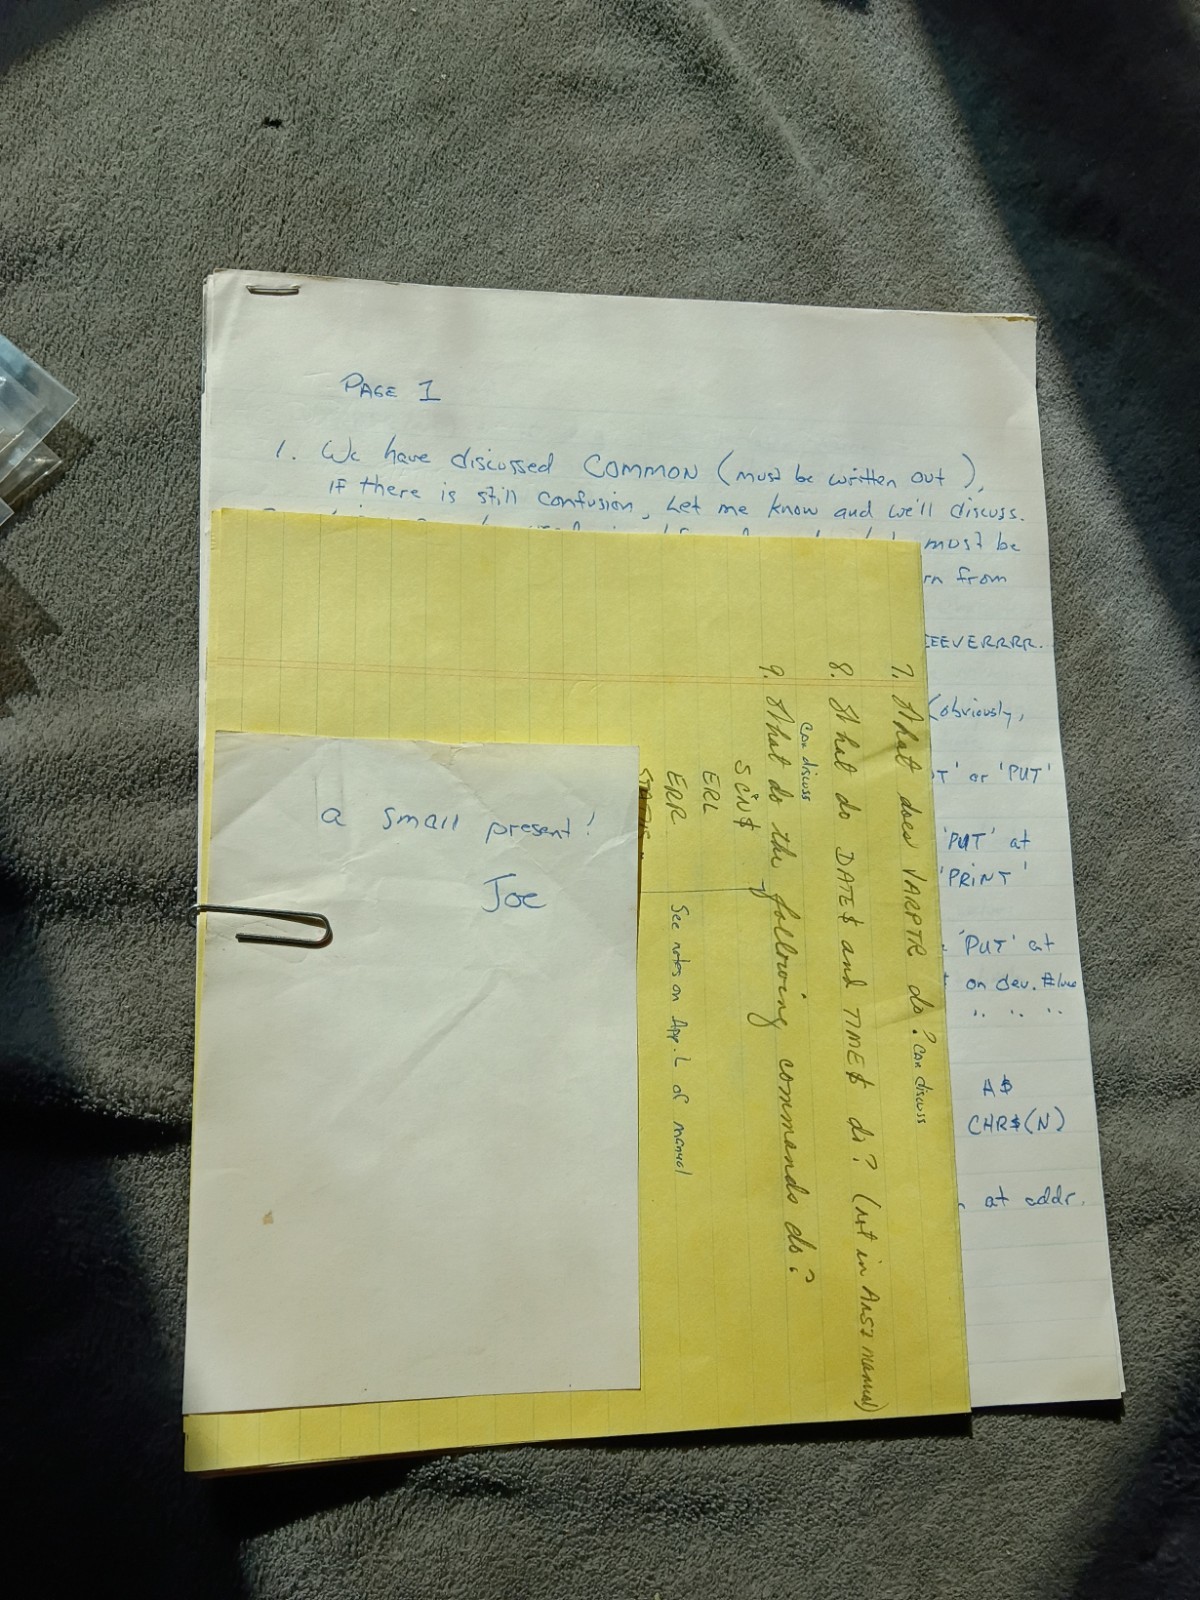 PAGE 1
1. We have discussed COMMON (must be written out),
if there is still confusion, let me know and we'll discuss.
must be
rn from
EEEVERRRR.
(obviously,
T' or 'PUT'
'PUT' at
'PRINT'
'PUT' at
on dev.
" " "
A$
CHR$(N)
at addr.
7. What does VARPTR do? can discuss
8. What do DATE$ and TIME$ do? (not in manual)
can discuss
9. What do the following commands do?
SCN$
ERL
ERR
See notes on App. L of manual
a small present!
Joe